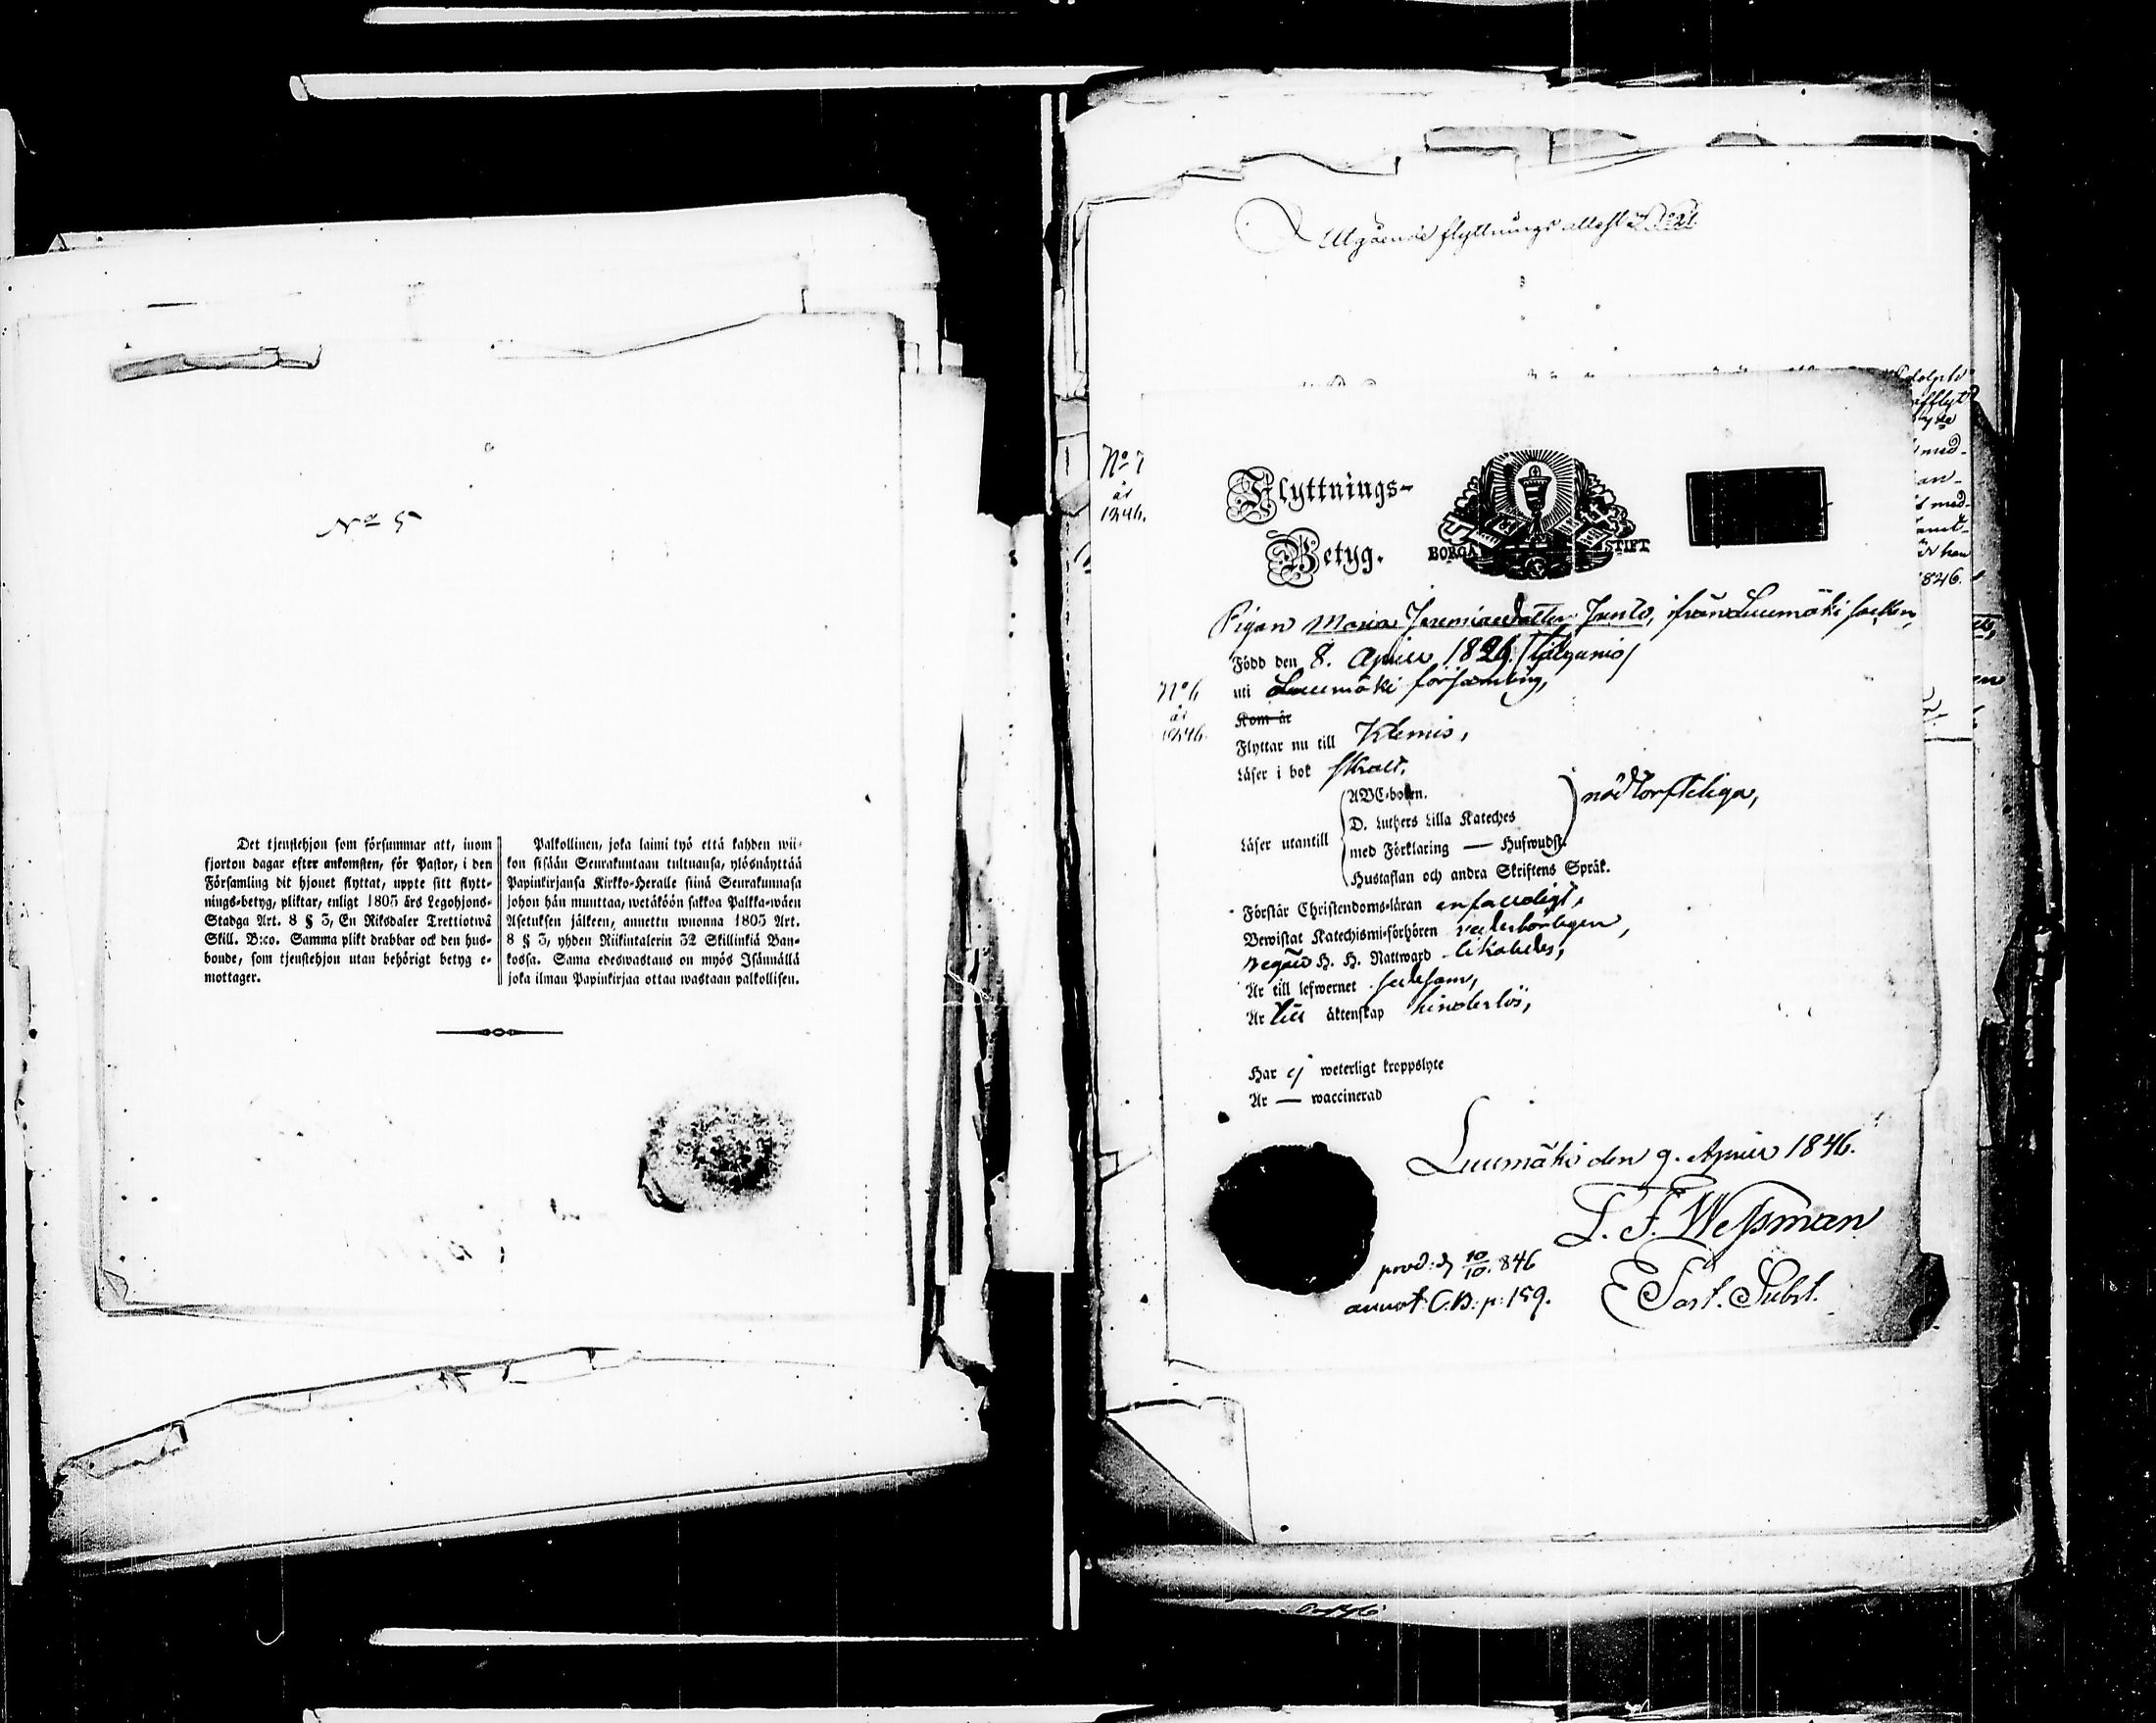 No 5
Det tjenstehjon som försummar att, inom
fjorton dagar efter ankomsten, för Pastor, i den
Församling dit hjonet flyttat, uppte sitt flytt-
nings-betyg, pliktar, enligt 1805 års Legohjons-
Stadga Art. 8 § 3, En Riksdaler Trettiotwå
Skill. B:co. Samma plikt drabbar ock den hus-
bonde, som tjenstehjon utan behörigt betyg e-
mottager.
Palkollinen, joka laimi työ että kahden wii-
kon sisään Seurakuntaan tultuansa, ylösnäyttää
Papinkirjansa Kirkko-Heralle siinä Seurakunnasa
johon hän muuttaa, wetäköön sakkoa Palkka-wäen
Asetuksen jälkeen, annettu wuonna 1805 Art.
8 § 3, yhden Riikintalerin 32 Skillinkiä Ban-
kossa. Sama edeswastaus on myös Isännällä
joka ilman Papinkirjaa ottaa wastaan palkollisen.
Utgående flyttnings attest No 21.
No 7
år
1846.
Flyttnings-
Betyg.
BORGÅ STIFT
Pigan Maria Jeremiaedotter Junto, ifrån Luumäki socken,
Född den 8. April 1826.
No 6
år
1846.
uti Luumäki församling,
Kom år
Flyttar nu till Klemis,
Läser i bok svalt,
Läser utantill
ABC-boken.
D. Luthers Lilla Kateches
med Förklaring — Hufwudst.
Hustaflan och andra Skriftens Språk.
nödtorfteliga,
Förstår Christendoms-läran enfaldigt,
Bewistat Katechismi-förhören vederbörligen,
Begått H. H. Nattward likaledes,
Är till lefwernet sedesam,
Är till äktenskap hinderlös,
Har ej weterligt kroppslyte
Är — waccinerad
Luumäki den 9. April 1846.
L. F. Wessman
Past. Subst.
prod: d 10/10. 846
annot: C.B: p: 159.